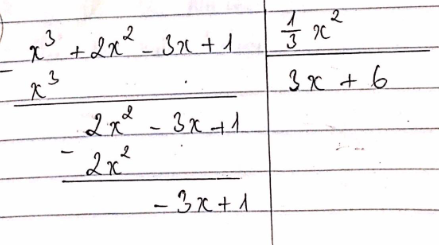 x³ + 2x² - 3x + 1 | 1/3 x²
- x³ | 3x + 6
2x² - 3x + 1
- 2x²
- 3x + 1